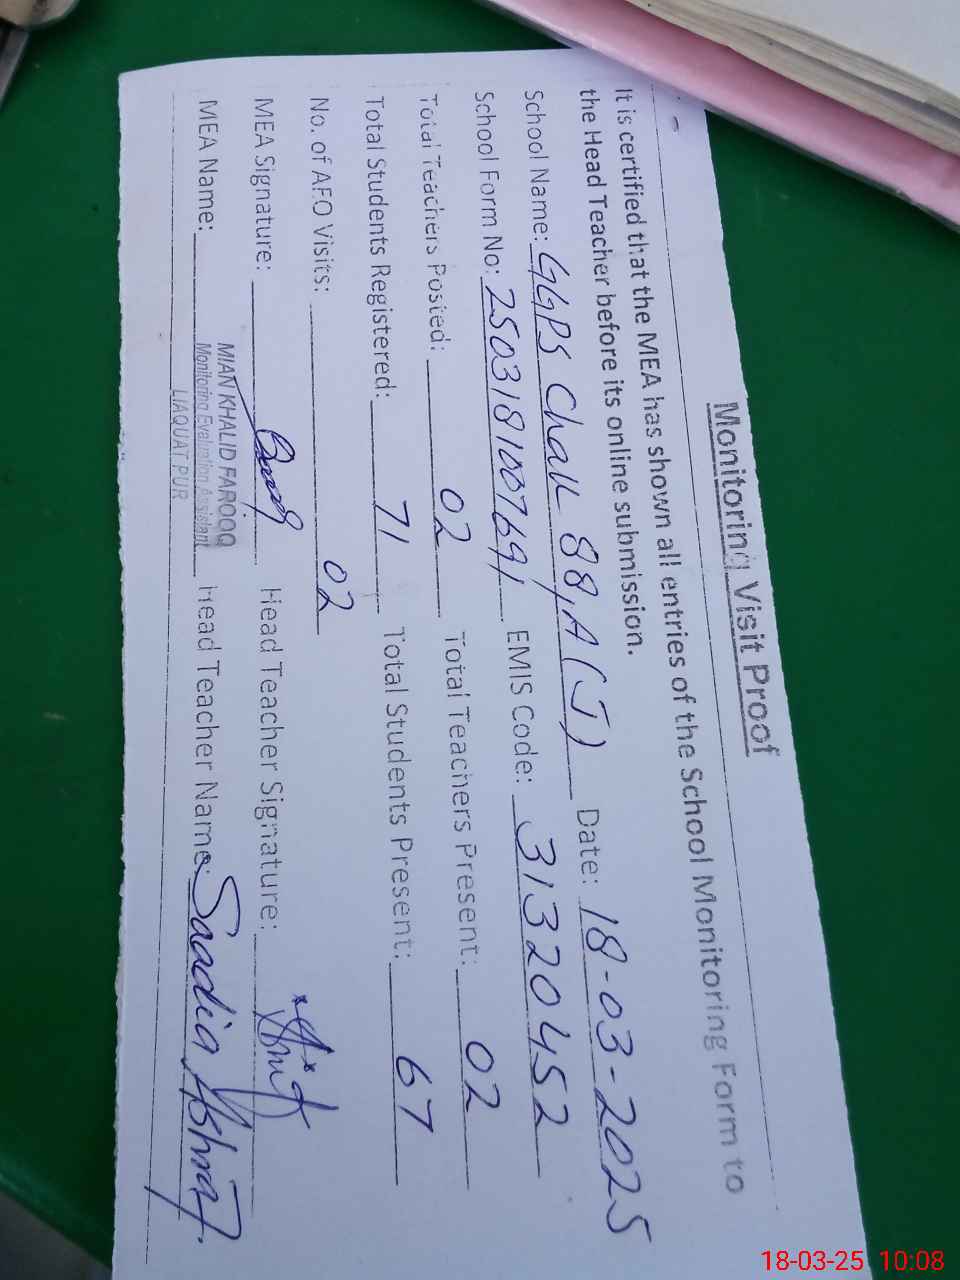 Monitoring Visit Proof
It is certified that the MEA has shown all entries of the School Monitoring Form to
the Head Teacher before its online submission.
School Name: GGPS Chak 88,A (J) Date: 18-03-2025
School Form No: 250318100769 EMIS Code: 31320452
Total Teachers Posted: 02 Total Teachers Present: 02
Total Students Registered: 71 Total Students Present: 67
No. of AEO Visits: 02
MEA Signature: Head Teacher Signature:
MEA Name: MIAN KHALID FAROOQ Head Teacher Name: Saadia
Monitoring Evaluation Assistant
LIAQUAT PUR
18-03-25 10:08